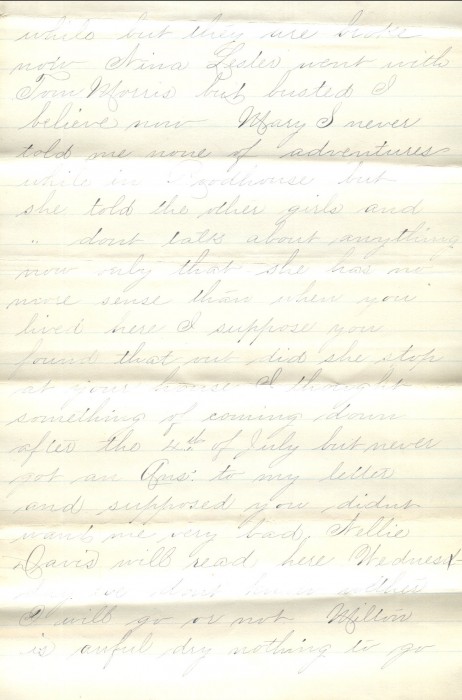 while but they are broke
now Nina Lester went with
Tom Morris but busted I
believe now Mary S never
told me none of adventures
while in Woodhouse but
she told the other girls and
" dont talk about anything
now only that she has no
more sense than when you
lived here I suppose you
found that out did she stop
at your house I thought
something of coming down
after the 4th of July but never
got an Ans. to my letter
and supposed you didnt
want me very bad Nellie
Davis will read here Wednesd-
ay we don't know whether
I will go or not Milton
is awful dry nothing to go